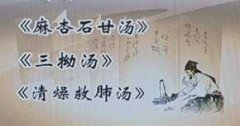 《麻杏石甘汤》
《三拗汤》
《清燥救肺汤》